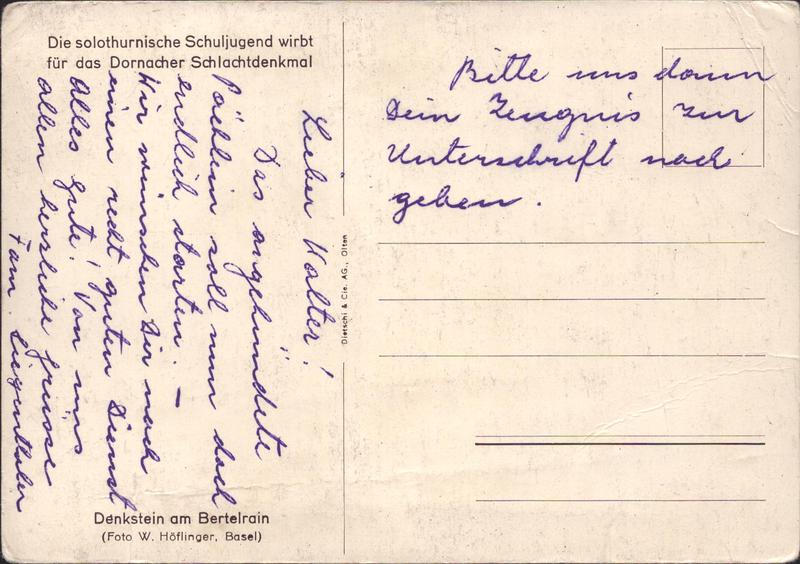 Die solothurnische Schuljugend wirbt
für das Dornacher Schlachtdenkmal
Lieber Walter!
Das angekündete
Päcklein soll nun doch
endlich starten. —
Wir wünschen Dir noch
einen recht guten Dienst
Alles gute! Von uns
allen herzliche grüsse
Fam. Lüginthaler
Denkstein am Bertelrain
(Foto W. Höflinger, Basel)
Dietschi & Cie. AG., Olten
Bitte uns dann
Dein Zeugnis zur
Unterschrift noch
geben.